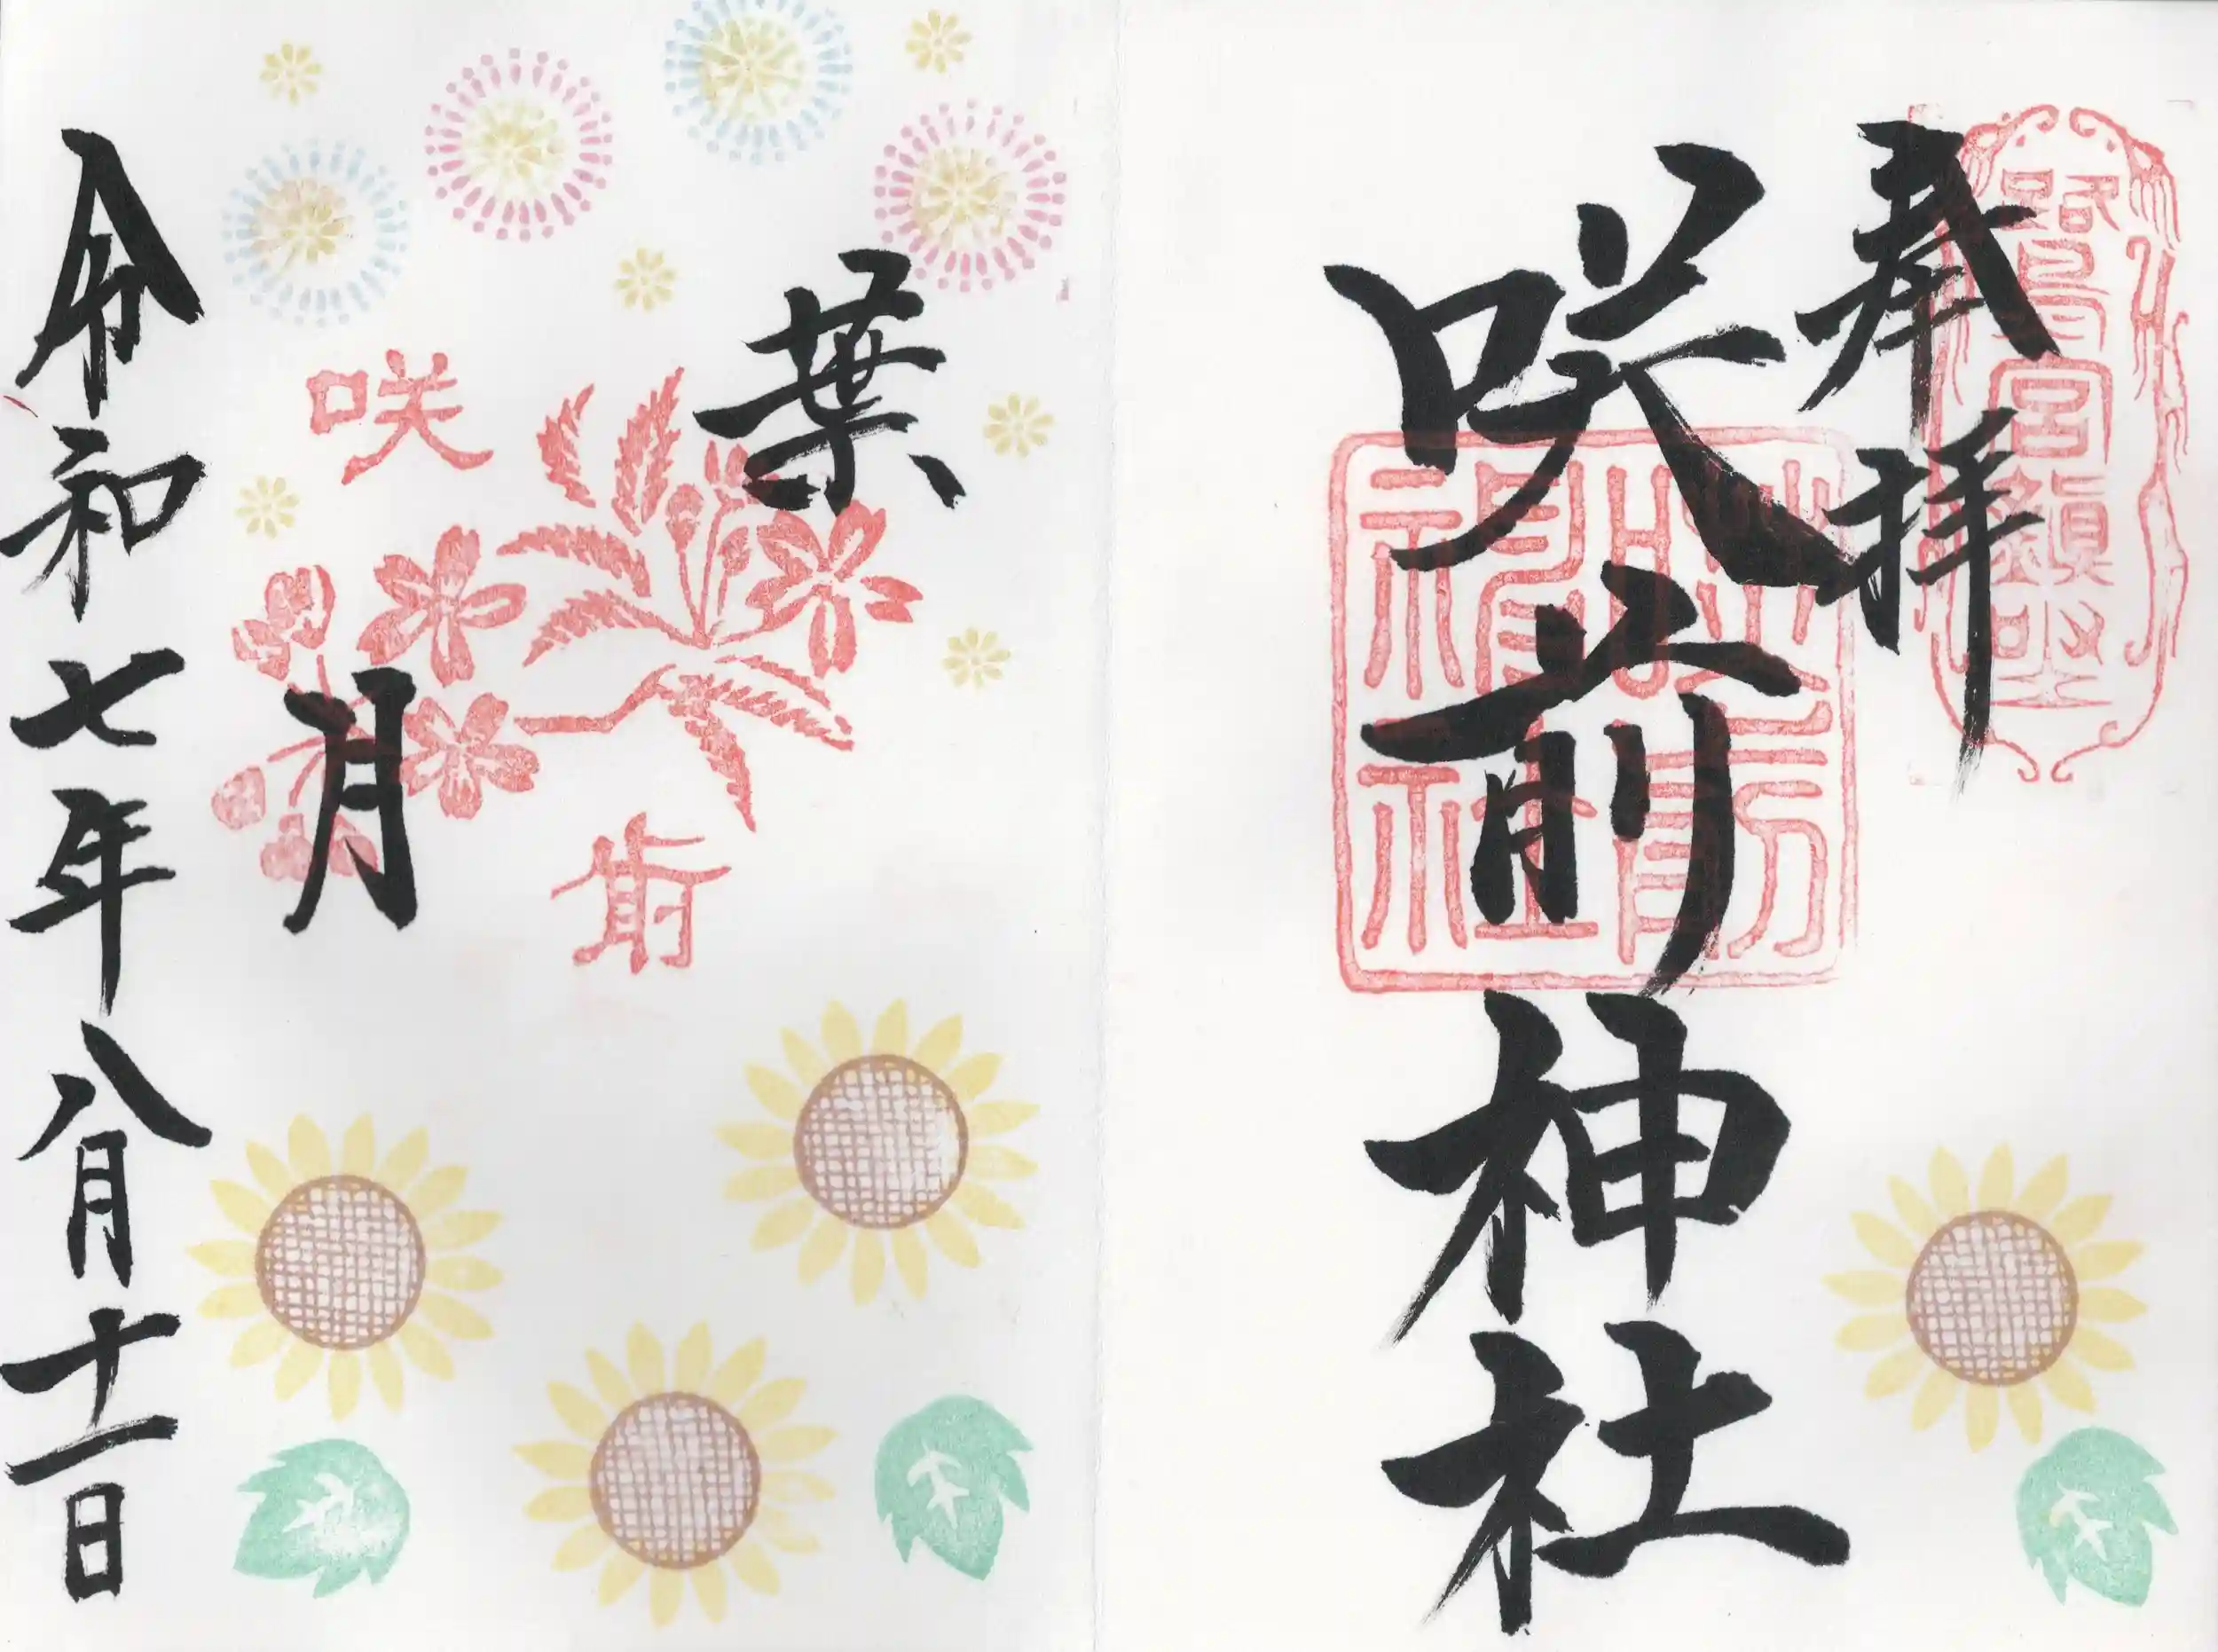 奉拝
咲前神社
葉月
咲前
令和七年八月十一日
咲前神社